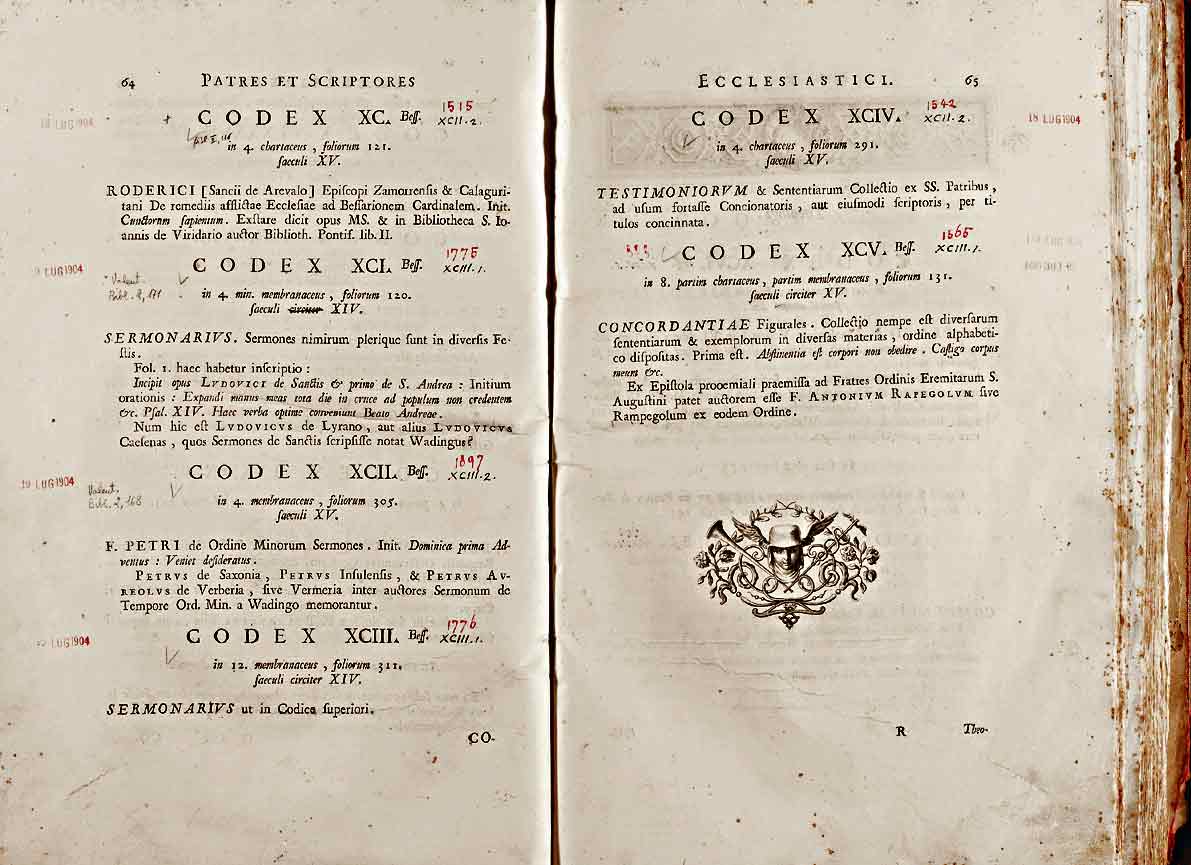 64 PATRES ET SCRIPTORES
CODEX XC. Beſſ. 1515 XCII.2.
LUG 1904
in 4. chartaceus, foliorum 121.
ſaeculi XV.
RODERICI [Sancii de Arevalo] Epiſcopi Zamorrenſis & Calaguri-
tani De remediis afflictae Eccleſiae ad Beſſarionem Cardinalem. Init.
Cunctorum ſapientum. Exſtare dicit opus MS. & in Bibliotheca S. Io-
annis de Viridario auctor Biblioth. Pontif. lib. II.
CODEX XCI. Beſſ. 1775 XCIII.1.
9 LUG 1904
Valent.
Bibl. 2, 171
in 4. min. membranaceus, foliorum 120.
ſaeculi circiter XIV.
SERMONARIVS. Sermones nimirum plerique ſunt in diverſis Fe-
ſtis.
Fol. 1. haec habetur inſcriptio:
Incipit opus LVDOVICI de Sanctis & primo de S. Andrea: Initium
orationis: Expandi manus meas tota die in cruce ad populum non credentem
&c. Pſal. XIV. Haec verba optime conveniunt Beato Andreae.
Num hic eſt LVDOVICVS de Lyrano, aut alius LVDOVICVS
Caeſenas, quos Sermones de Sanctis ſcripſiſſe notat Wadingus?
CODEX XCII. Beſſ. 1897 XCIII.2.
19 LUG 1904
Valent.
Bibl. 2, 168
in 4. membranaceus, foliorum 305.
ſaeculi XV.
F. PETRI de Ordine Minorum Sermones. Init. Dominica prima Ad-
ventus: Veniet deſideratus.
PETRVS de Saxonia, PETRVS Inſulenſis, & PETRVS AV-
REOLVS de Verberia, ſive Vermeria inter auctores Sermonum de
Tempore Ord. Min. a Wadingo memorantur.
CODEX XCIII. Beſſ. 1776 XCIII.1.
LUG 1904
in 12. membranaceus, foliorum 311.
ſaeculi circiter XIV.
SERMONARIVS ut in Codice ſuperiori.
CO-
ECCLESIASTICI. 65
CODEX XCIV. 1542 XCII.2.
18 LUG 1904
in 4. chartaceus, foliorum 291.
ſaeculi XV.
TESTIMONIORVM & Sententiarum Collectio ex SS. Patribus,
ad uſum fortaſſe Concionatoris, aut eiuſmodi ſcriptoris, per ti-
tulos concinnata.
CODEX XCV. Beſſ. XCIII.1.
in 8. partim chartaceus, partim membranaceus, foliorum 131.
ſaeculi circiter XV.
CONCORDANTIAE Figurales. Collectio nempe eſt diverſarum
ſententiarum & exemplorum in diverſas materias, ordine alphabeti-
co diſpoſitas. Prima eſt. Abſtinentia eſt corpori non obedire. Caſtigo corpus
meum &c.
Ex Epiſtola prooemiali praemiſſa ad Fratres Ordinis Eremitarum S.
Auguſtini patet auctorem eſſe F. ANTONIVM RAPEGOLVM ſive
Rampegolum ex eodem Ordine.
R Theo-